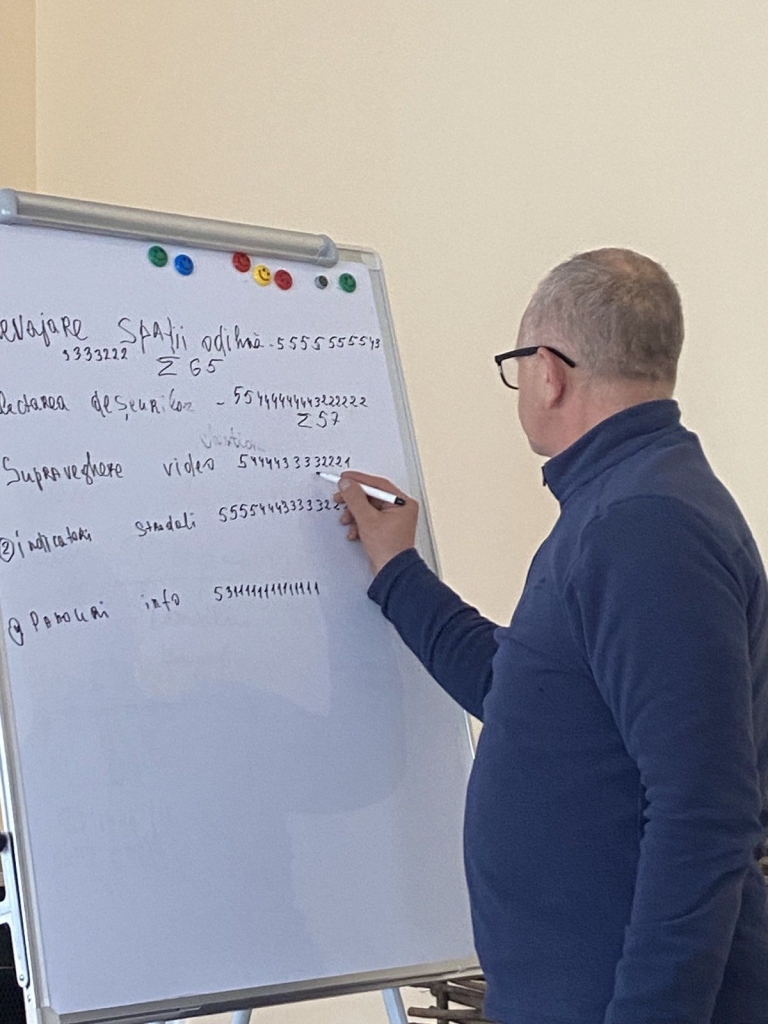 evajare Spații odihnă - 5555555543
3333222 Σ 65
lectarea deșeurilor - 5544444443222222
Σ 57
Supraveghere video 5444433332221
② indicatori stradali 5555444333332
Panouri info 5311111111111